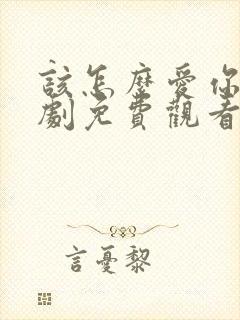 該怎麼愛你
劇免費觀看
言憂黎